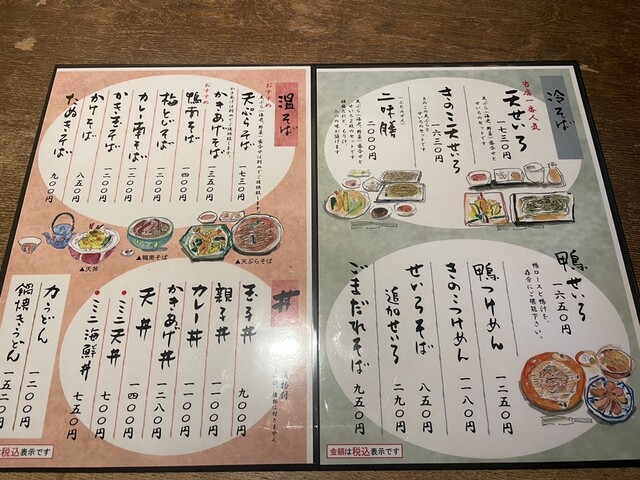 冷そば
当店一番人気
天せいろ
一七三〇円
きのこ天せいろ
一六三〇円
二味膳
二〇〇〇円
鴨せいろ
一六五〇円
鴨ロースと揚げを、
存分にご堪能下さい。
鴨つけめん
一二五〇円
きのこつけめん
一一八〇円
せいろそば
八五〇円
追加せいろ
二九〇円
ごまだれそば
九五〇円
金額は税込表示です
温そば
おすすめ
天ぷらそば
一七三〇円
かきあげそば
一三五〇円
おすすめ
鴨南そば
一四〇〇円
梅とじそば
カレー南そば
かき玉そば
かけそば
八五〇円
たぬきそば
九〇〇円
▲天丼
▲鴨南そば
▲天ぷらそば
丼
玉子丼
九〇〇円
親子丼
一一〇〇円
カレー丼
一一〇〇円
かきあげ丼
一二八〇円
天丼
一四〇〇円
ミニ天丼
ミニ海鮮丼
七五〇円
力うどん
一二〇〇円
鍋焼きうどん
一五二〇円
税込表示です